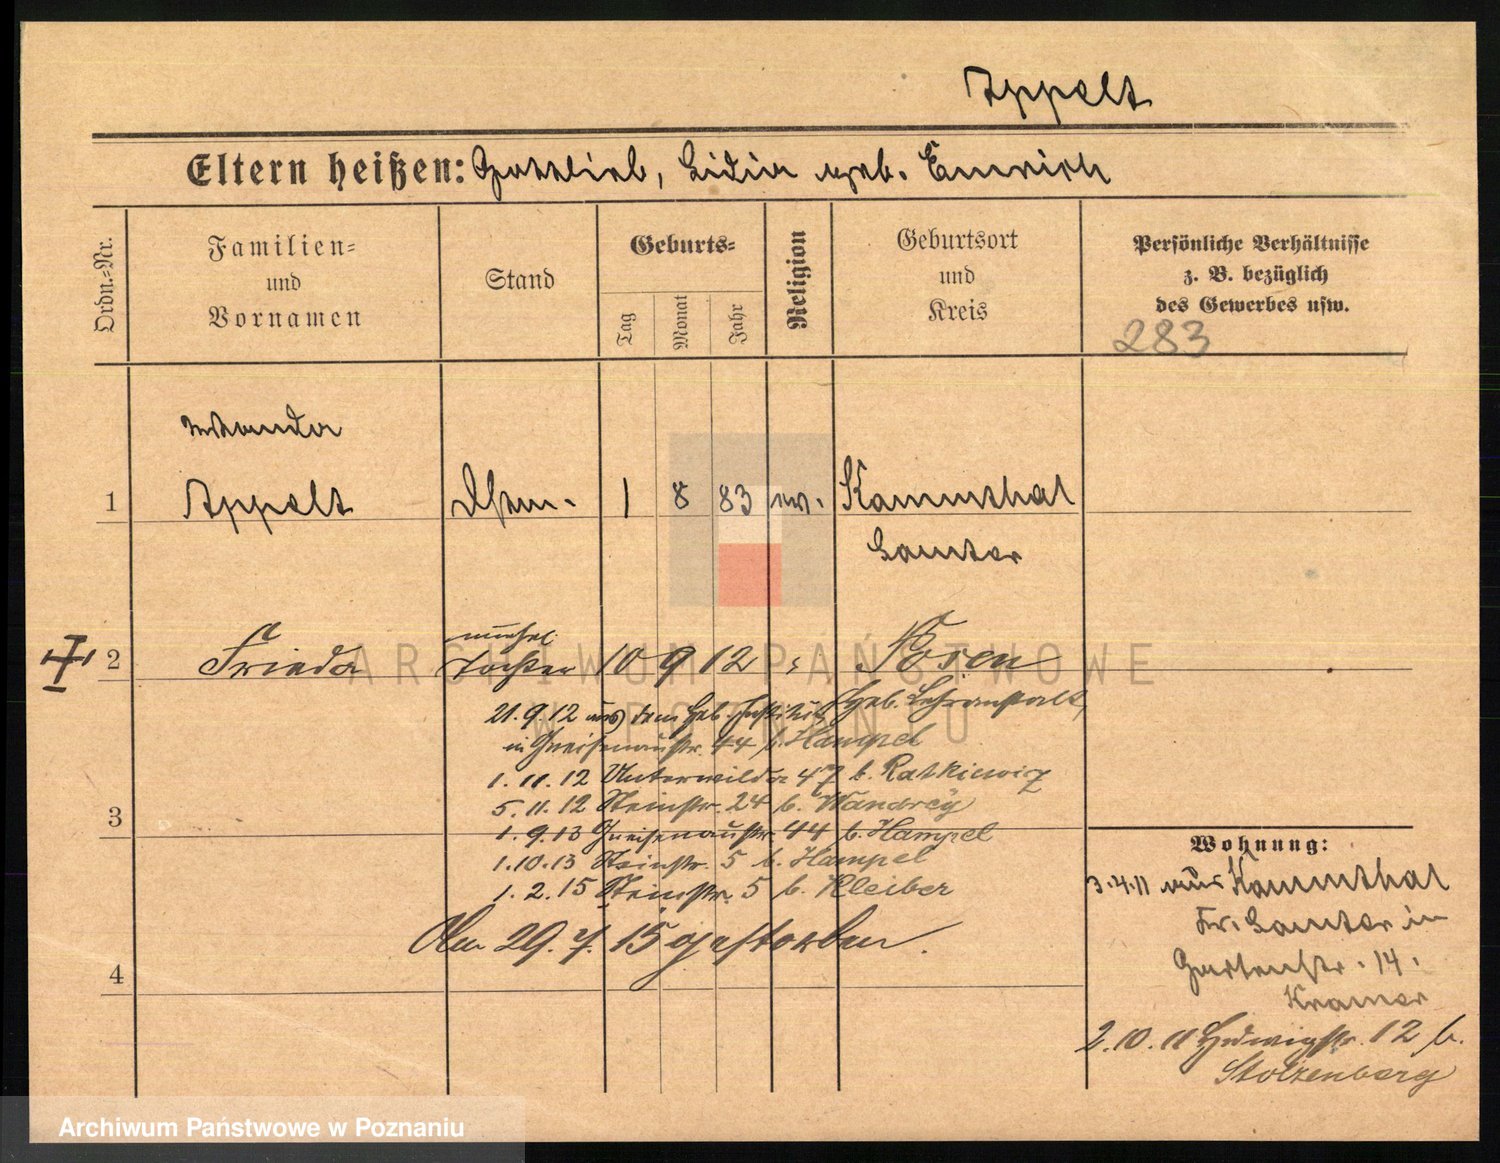 Appelt
Eltern heißen: Gottlieb, Lidia geb. Emrich
Ordn.=Nr.
Familien=
und
Vornamen
Stand
Geburts=
Tag
Monat
Jahr
Religion
Geburtsort
und
Kreis
Persönliche Verhältnisse
z. B. bezüglich
des Gewerbes usw.
283
Wanda
1 Appelt 1 8 83 ev. Kammthal
Samter
unehel.
2 Frieda Tochter 10 9 12 " Posen
21.9.12 aus dem Heb. Institut Heb. Lehranstalt,
in Gneisenaustr. 44 b. Hampel
1.11.12 Unterwilda 47 b. Ratkiewicz
5.11.12 Steinstr. 24 b. Wandrey
3
1.9.13 Gneisenaustr. 44 b. Hampel
1.10.13 Steinstr. 5 b. Hampel
1.2.15 Steinstr. 5 b. Kleiber
29. 7. 15 gestorben.
4
Wohnung:
3.4.11 aus Kammthal
Kr. Samter in
Gartenstr. 14.
Kramer
2.10.11 Hedwigstr. 12 b.
Stolzenberg
ARCHIWUM PAŃSTWOWE
W POZNANIU
Archiwum Państwowe w Poznaniu